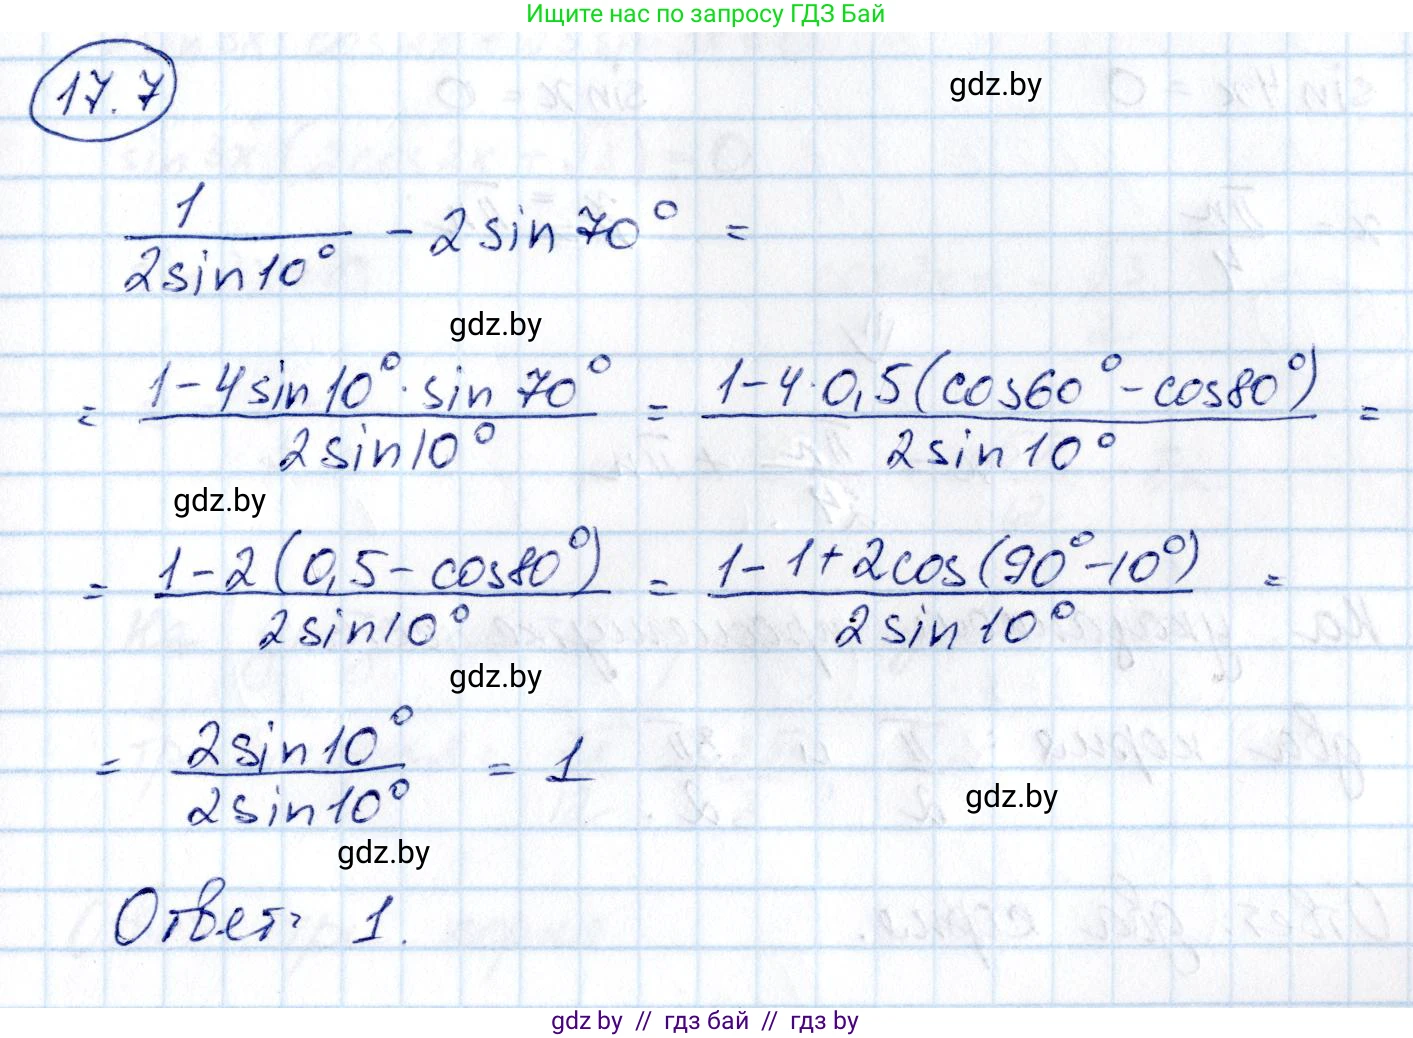 Ищите нас по запросу ГДЗ Бай
17.7
gdz.by
1/(2sin10°) - 2sin70° =
gdz.by
= (1-4sin10°·sin70°)/(2sin10°) = (1-4·0,5(cos60°-cos80°))/(2sin10°) =
gdz.by
= (1-2(0,5-cos80°))/(2sin10°) = (1-1+2cos(90°-10°))/(2sin10°) =
gdz.by
= (2sin10°)/(2sin10°) = 1
gdz.by
gdz.by
Ответ: 1.
gdz by // гдз бай // гдз by